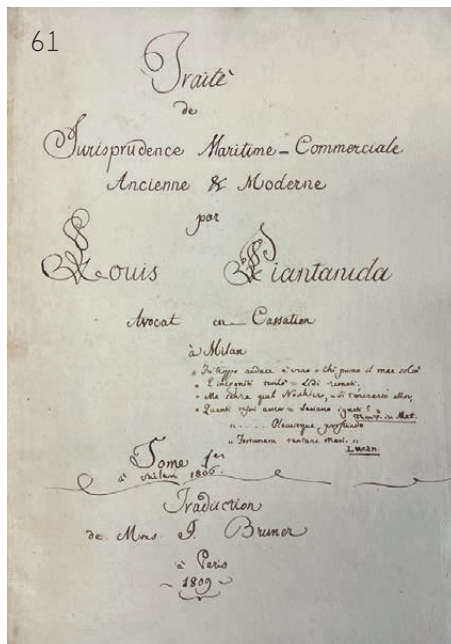 61
Traité
de
Jurisprudence Maritime - Commerciale
Ancienne & Moderne
par
Louis Piantanida
Avocat en Cassation
à Milan
" troppo audace è vero = chi primo il mar solcò
" E incogniti = Lidi remoti.
" Ma senza quel Nochiero,
" Quanti = Sariano ignoti?
in Met.
" . . . .
" Fortunam tentare maris. "
Lucan.
Tome 1er
à Milan 1806.
Traduction
de Mons J. Bruner
à Paris
- 1809 -